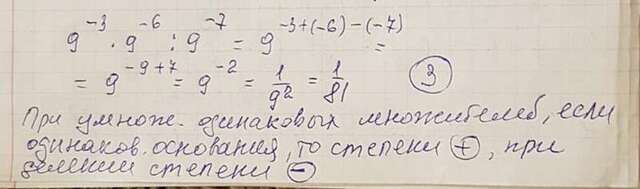 9⁻³ · 9⁻⁶ : 9⁻⁷ = 9⁻³⁺⁽⁻⁶⁾⁻⁽⁻⁷⁾ =
= 9⁻⁹⁺⁷ = 9⁻² = 1/9² = 1/81 ③
При умнож. одинаковых множителей, если
одинаков. основания, то степени ⊕, при
делении степени ⊖